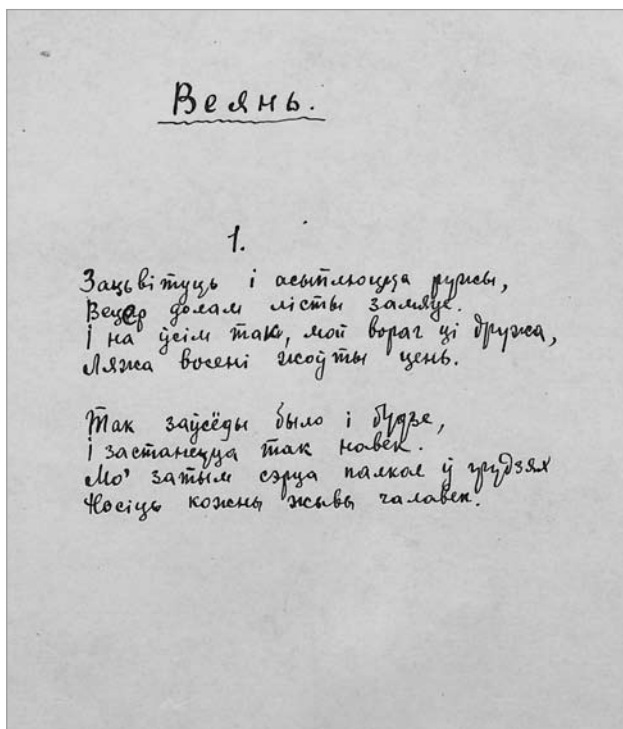 Веянь.
1.
Зацьвітуць і асыплюцца ружы,
Вецер долам лісты замяце.
І на ўсім так, мой вораг ці дружа,
Ляжа восені жоўты цень.
Так заўсёды было і будзе,
І застанецца так навек.
Мо' затым сэрца палкае ў грудзях
Носіць кожны жывы чалавек.